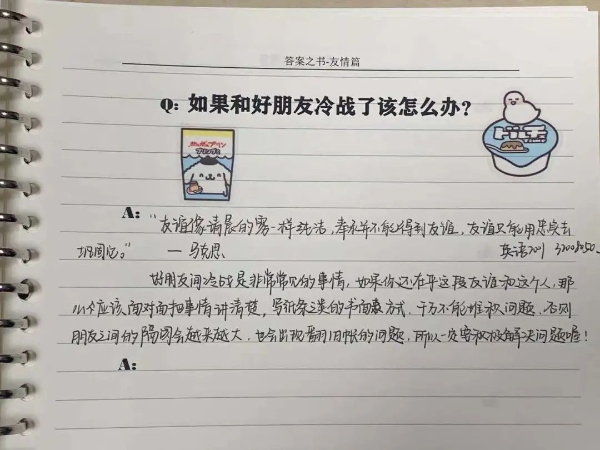 答案之书-友情篇
Q: 如果和好朋友冷战了该怎么办?
A: "友谊像清晨的雾一样纯洁,奉承并不能得到友谊,友谊只能用忠实去
巩固它。" —马克思 英语2001
好朋友间冷战是非常常见的事情,如果你还在乎这段友谊和这个人,那
么应该面对面把事情讲清楚,写纸条之类的书面表方式,千万不能堆积问题,否则
朋友之间的隔阂会越来越大,也会出现翻旧帐的问题,所以一定要积极解决问题喔!
A: